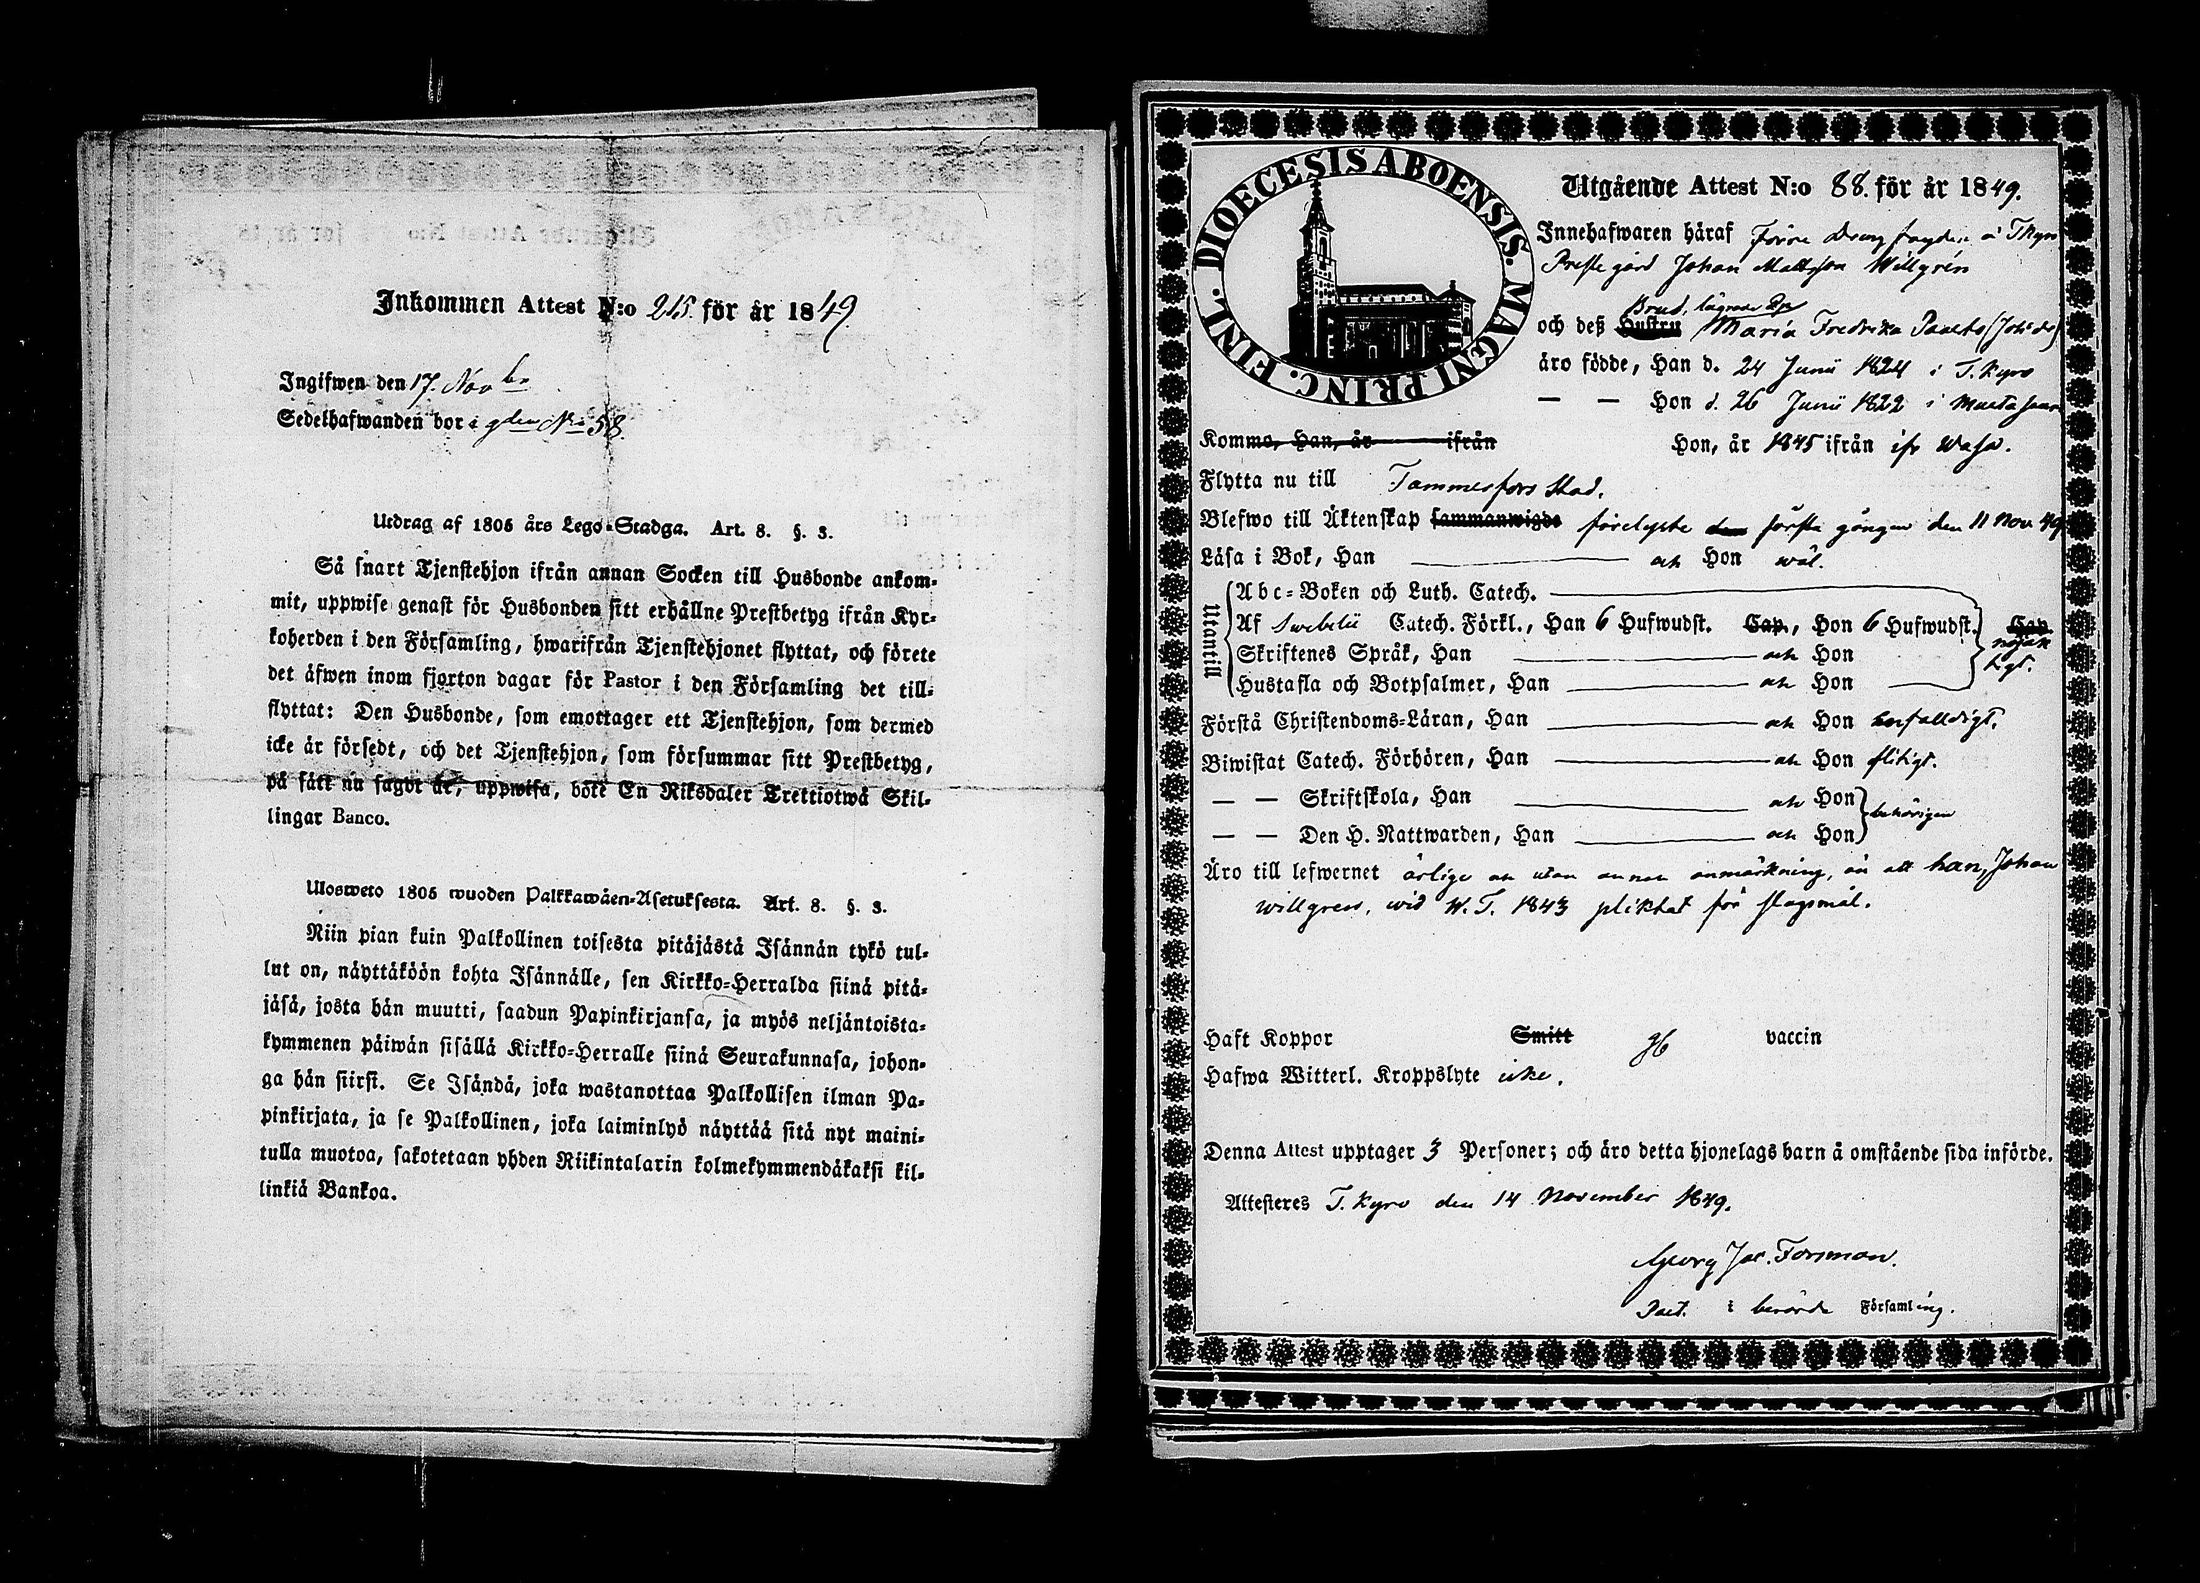 Inkommen Attest N:o 215 för år 1849.
Ingifwen den 17. Novbr
Sedelhafwanden bor i gden No 58.
Utdrag af 1805 års Lego-Stadga. Art. 8. §. 3.
Så snart Tjenstehjon ifrån annan Socken till Husbonde ankom-
mit, uppwise genast för Husbonden sitt erhållne Prestbetyg ifrån Kyr-
koherden i den Församling, hwarifrån Tjenstehjonet flyttat, och förete
det äfwen inom fjorton dagar för Pastor i den Församling det till-
flyttat: Den Husbonde, som emottager ett Tjenstehjon, som dermed
icke är försedt, och det Tjenstehjon, som försummar sitt Prestbetyg,
på sätt nu sagdt är, uppwisa, böte En Riksdaler Trettiotwå Skil-
lingar Banco.
Ulosweto 1805 wuoden Palkkawäen-Asetuksesta. Art. 8. §. 3.
Niin pian kuin Palkollinen toisesta pitäjästä Isännän tykö tul-
lut on, näyttäköön kohta Isännälle, sen Kirkko-Herralda siinä pitä-
jäsä, josta hän muutti, saadun Papinkirjansa, ja myös neljäntoista-
kymmenen päiwän sisällä Kirkko-Herralle siinä Seurakunnasa, johon-
ga hän siirsi. Se Isändä, joka wastanottaa Palkollisen ilman Pa-
pinkirjata, ja se Palkollinen, joka laiminlyö näyttää sitä nyt maini-
tulla muotoa, sakotetaan yhden Riikintalarin kolmekymmendäkaksi kil-
linkiä Bankoa.
DIOECESIS ABOENSIS. MAGNI PRINC. FINL.
Utgående Attest N:o 88. för år 1849.
Innehafwaren häraf förre Drengfogden i Tkyro
Preste gård Johan Mattsson Willgrén
Brud, lägrade Pig
och deß Hustru Maria Fredrika (Johsdr)
äro födde, Han d. 24 Junii 1824 i T. Kyro
— — Hon d. 26 Junii 1822 i Mustasaari
Komma, Han, år ifrån Hon, år 1845 ifrån Wasa.
Flytta nu till Tammerfors Stad.
Blefwo till Äktenskap sammanwigde förelyste den första gången den 11 Nov 49.
Läsa i Bok, Han och Hon wäl.
Utantill
Abc-Boken och Luth. Catech.
Af Swebelii Catech. Förkl., Han 6 Hufwudst. Cap., Hon 6 Hufwudst. Cap.
nöjak
tigt.
Skriftenes Språk, Han och Hon
Hustafla och Botpsalmer, Han och Hon
Förstå Christendoms-Läran, Han och Hon enfalldigt.
Biwistat Catech. Förhören, Han och Hon flitigt.
— — Skriftskola, Han och Hon
behörigen
— — Den H. Nattwarden, Han och Hon
Äro till lefwernet ärlige och utan annan anmärkning, än att han, Johan
Willgren, wid W. T. 1843 pliktat för slagsmål.
Haft Koppor Smitt vaccin
Hafwa Witterl. Kroppslyte icke.
Denna Attest upptager 3 Personer; och äro detta hjonelags barn å omstående sida införde.
Attesteres T. Kyro den 14 November 1849.
Georg Jac. Forsman.
Past. i berörde Församling.